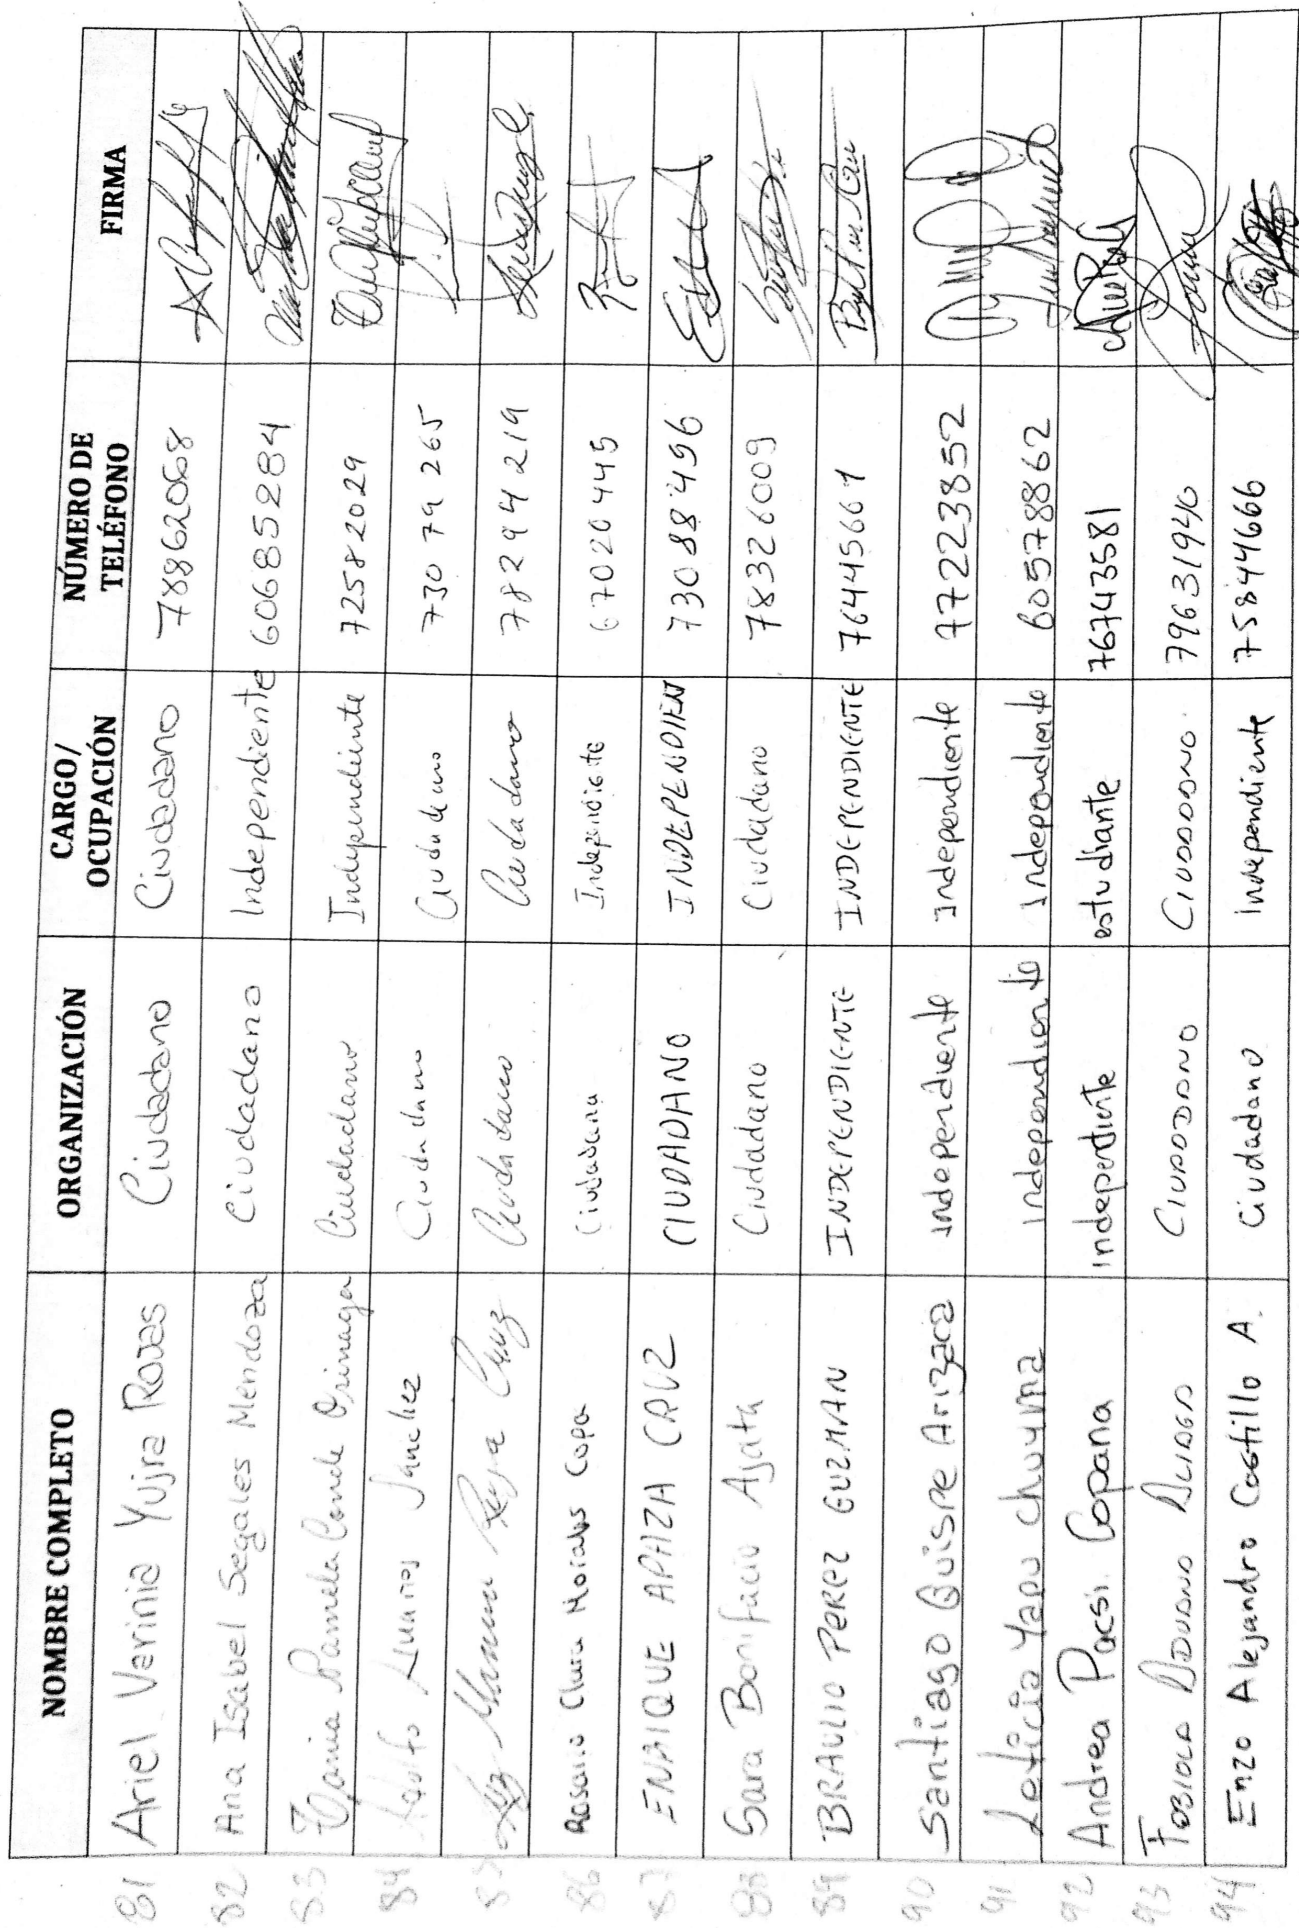 NOMBRE COMPLETO ORGANIZACIÓN CARGO/ OCUPACIÓN NÚMERO DE TELÉFONO FIRMA
81 Ariel Verinia Yujra Rojas Ciudadano Ciudadano 78862068
82 Ana Isabel Segales Mendoza Ciudadano Independiente 60685284
83 Tania Pamela Conde Orinaga Ciudadano Independiente 72582029
84 Adolfo Sanchez Ciudadano Ciudadano 730 79 265
85 Luz Reyna Cruz Ciudadano Ciudadano 78294219
86 Rosario Clara Morales Copa Ciudadana Independiente 67020445
87 ENRIQUE APAZA CRUZ CIUDADANO INDEPENDIEN 73088496
88 Sara Bonifacio Ajata Ciudadano Ciudadano 78326009
89 BRAULIO PEREZ GUZMAN INDEPENDIENTE INDEPENDIENTE 76445661
90 Santiago Quispe Arizaca independiente independiente 77223852
91 Leticia Yapu Chuyma independiente independiente 60578862
92 Andrea Pacsi Copana independiente estudiante 76743581
93 FABIOLA ADUANA ALIAGA CIUDADANO CIUDADANO 79631940
94 Enzo Alejandro Castillo A. Ciudadano independiente 75844666